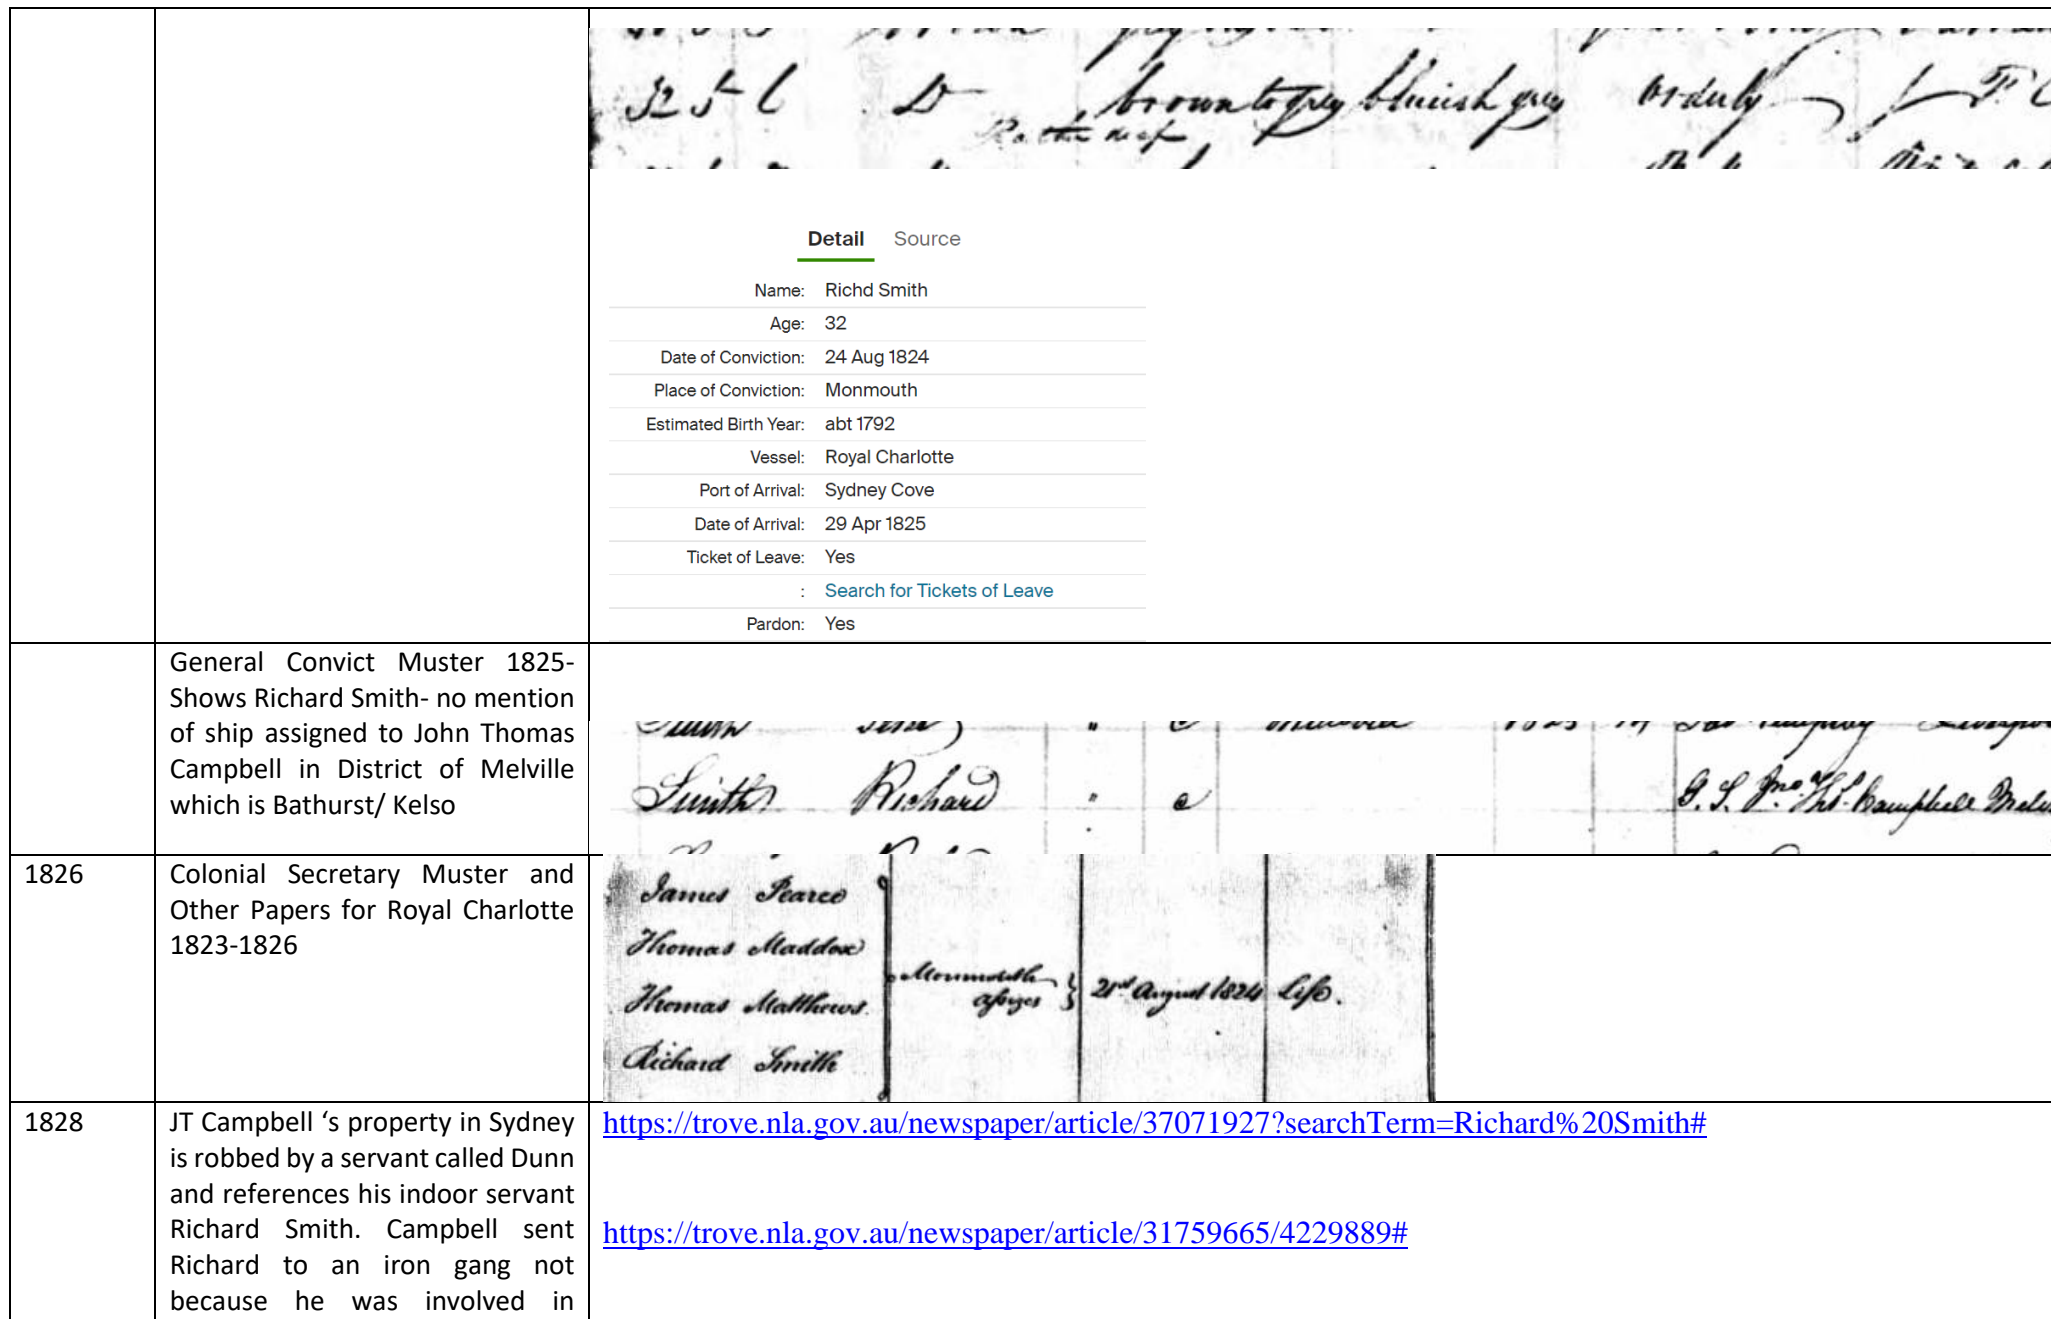 32 5 6 D brown to grey bluish grey orderly
Rather deep
Detail Source
Name: Richd Smith
Age: 32
Date of Conviction: 24 Aug 1824
Place of Conviction: Monmouth
Estimated Birth Year: abt 1792
Vessel: Royal Charlotte
Port of Arrival: Sydney Cove
Date of Arrival: 29 Apr 1825
Ticket of Leave: Yes
: Search for Tickets of Leave
Pardon: Yes
General Convict Muster 1825-
Shows Richard Smith- no mention
of ship assigned to John Thomas
Campbell in District of Melville
which is Bathurst/ Kelso
Smith Richard " c G. S. Jno. Thos. Campbell
1826
Colonial Secretary Muster and
Other Papers for Royal Charlotte
1823-1826
James Pearce
Thomas Maddox
Thomas Matthews.
Richard Smith
Monmouth
assizes
21st August 1824 Life.
1828
JT Campbell ‘s property in Sydney
is robbed by a servant called Dunn
and references his indoor servant
Richard Smith. Campbell sent
Richard to an iron gang not
because he was involved in
https://trove.nla.gov.au/newspaper/article/37071927?searchTerm=Richard%20Smith#
https://trove.nla.gov.au/newspaper/article/31759665/4229889#